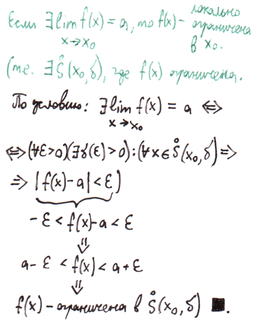 Если ∃lim f(x) = a, то f(x) - локально ограничена в x₀.
x→x₀
(т.е. ∃S̊(x₀,δ), где f(x) ограничена.
По условию: ∃lim f(x) = a ⇔
x→x₀
⇔ (∀ε>0)(∃δ(ε)>0): (∀x∈S̊(x₀,δ) ⇒
⇒ |f(x)-a|<ε)
-ε < f(x)-a < ε
⇓
a-ε < f(x) < a+ε
⇓
f(x) - ограничена в S̊(x₀,δ) ■.